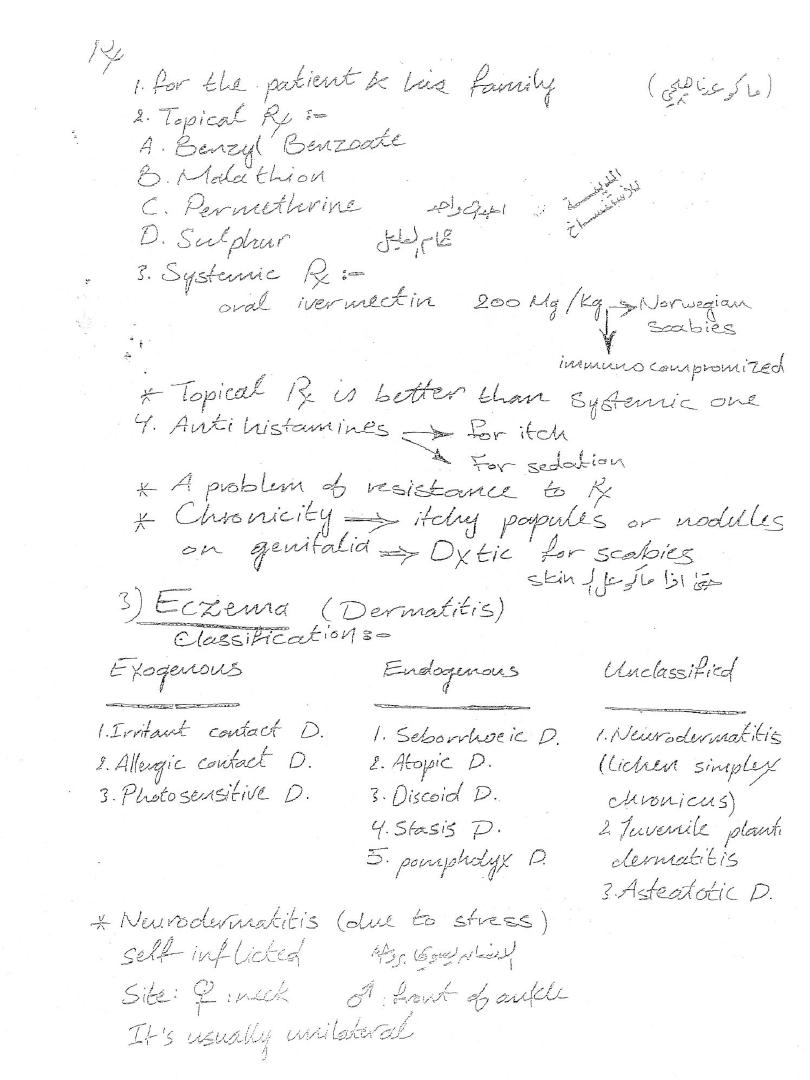 Rx
1. for the patient & his family (ماكو عدنا هيچي)
2. Topical Rx :-
A. Benzyl Benzoate
B. Malathion
C. Permethrine
المدينة
للاستنساخ
D. Sulphur
3. Systemic Rx :-
oral ivermectin 200 Mg/Kg → Norwegian
scabies
immunocompromized
* Topical Rx is better than systemic one
4. Anti histamines → For itch
For sedation
* A problem of resistance to Rx
* Chronicity ⇒ itchy papules or nodules
on genitalia ⇒ Dxtic for scabies
حتى اذا ماكو على الـ skin
3) Eczema (Dermatitis)
Classification :-
Exogenous Endogenous Unclassified
1. Irritant contact D. 1. Seborrhoeic D. 1. Neurodermatitis
2. Allergic contact D. 2. Atopic D. (lichen simplex
3. Photosensitive D. 3. Discoid D. chronicus)
4. Stasis D. 2. Juvenile plant
5. pompholyx D. dermatitis
3. Asteatotic D.
* Neurodermatitis (due to stress)
self inflicted
Site: ♀ : neck ♂ : front of ankle
It's usually unilateral